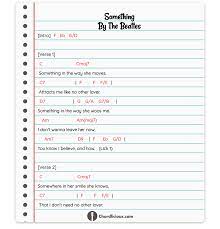 Something
By The Beatles
[Intro] F Eb G/D
[Verse 1]
C Cmaj7
Something in the way she moves,
C7 ( F F F/E )
Attracts me like no other lover.
D7 ( G G/A G/B )
Something in the way she woos me.
Am Am(maj7)
I don't wanna leave her now,
Am7 D7 ( F Eb G/D )
You know I believe, and how. (Lick 1)
[Verse 2]
C Cmaj7
Somewhere in her smile she knows,
C7 ( F F F/E )
That I don't need no other lover.
Chordicious.com